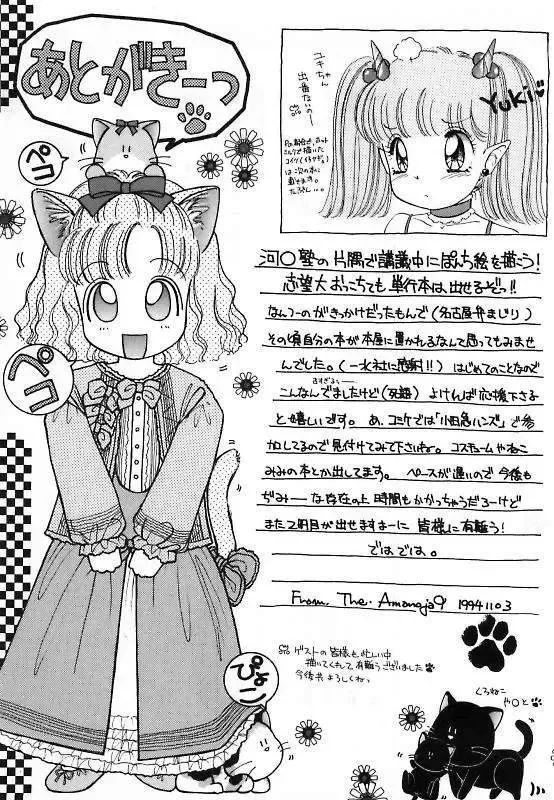 あとがきーっ
ペコ
ユキちゃん
出番ない?
は次の本に
Yuki
河○塾の片隅で講義中にぽんち絵を描こう!
志望大おっこちても単行本は、出せるぞっ!!
なんつーのがきっかけだったもんで(名古屋弁まじり)
その頃自分の本が本屋に置かれるなんて思ってもみませ
んでした。(一水社に感謝!!)はじめてのことなので
こんなんでましたけど(死語)よければ応援下さる
と嬉しいです。あ、コミケでは「小田急ハンズ」で参
加してるので見付けてみて下さいね。コスチュームやねこ
みみの本とか出してます。ペースが遅いので今後も
ぢみーな存在の上、時間もかかっちゃうだろーけど
またて明日が出せますよーに皆様に有難う!
ではでは。
From. The. Amanoja9 1994.11.03
ペコ
ゲストの皆様も忙しい中
描いてくれて有難うございました
今後共よろしくねっ
ぴょこ
くろねこ
や○と